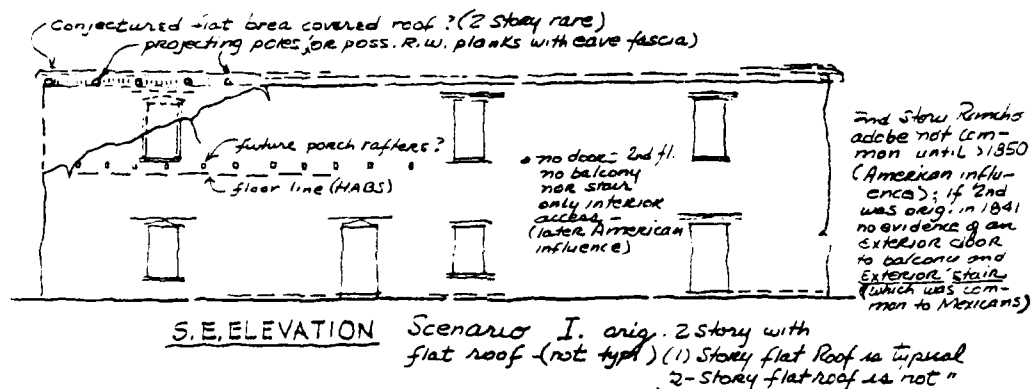 Conjectured flat area covered roof? (2 story rare)
projecting poles, or poss. R.W. planks with eave fascia)
future porch rafters?
floor line (HABS)
• no door - 2nd fl.
no balcony
nor stair
only interior
access -
(later American
influence)
2nd story Rancho
adobe not com-
mon until >1850
(American influ-
ence); if 2nd
was orig. in 1841
no evidence of an
exterior door
to balcony and
Exterior stair
(which was com-
mon to Mexicans)
S.E. ELEVATION
Scenario I. orig. 2 story with
flat roof (not typ.) (1) Story flat Roof is typical
2-Story flat roof is not "